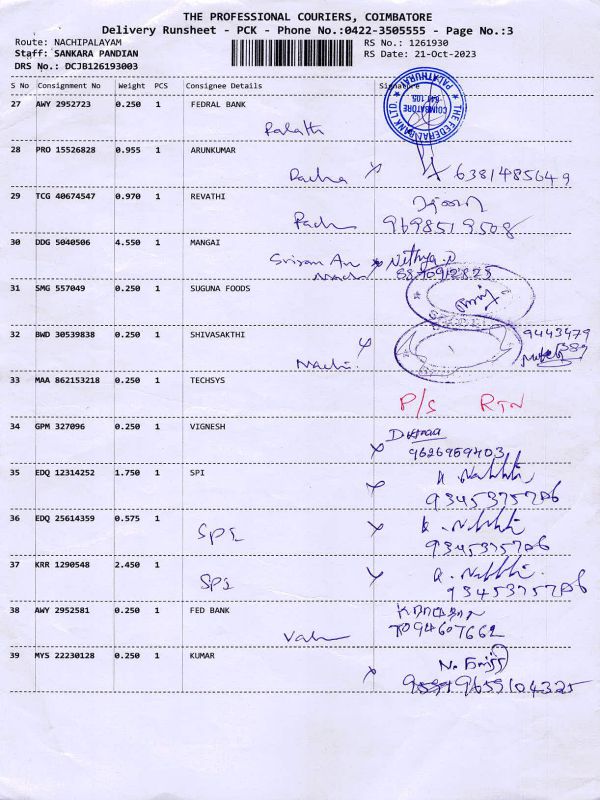 THE PROFESSIONAL COURIERS, COIMBATORE
Delivery Runsheet - PCK - Phone No.:0422-3505555 - Page No.:3
Route: NACHIPALAYAM RS No.: 1261930
Staff: SANKARA PANDIAN RS Date: 21-Oct-2023
DRS No.: DCJB126193003
S No Consignment No Weight PCS Consignee Details Signature
27 AWY 2952723 0.250 1 FEDRAL BANK
THE FEDERAL BANK LTD. COIMBATORE 641 105 PALATHURAI
28 PRO 15526828 0.955 1 ARUNKUMAR
6381485649
29 TCG 40674547 0.970 1 REVATHI
9698519508
30 DDG 5040506 4.550 1 MANGAI
Nithya
31 SMG 557049 0.250 1 SUGUNA FOODS
32 BWD 30539838 0.250 1 SHIVASAKTHI
9443479
389
Nachi.
33 MAA 862153218 0.250 1 TECHSYS
P/S RTN
34 GPM 327096 0.250 1 VIGNESH
9626959403
35 EDQ 12314252 1.750 1 SPI
9345375706
36 EDQ 25614359 0.575 1
SPI
9345375706
37 KRR 1290548 2.450 1
SPI
9345375706
38 AWY 2952581 0.250 1 FED BANK
39 MYS 22230128 0.250 1 KUMAR
9659104325